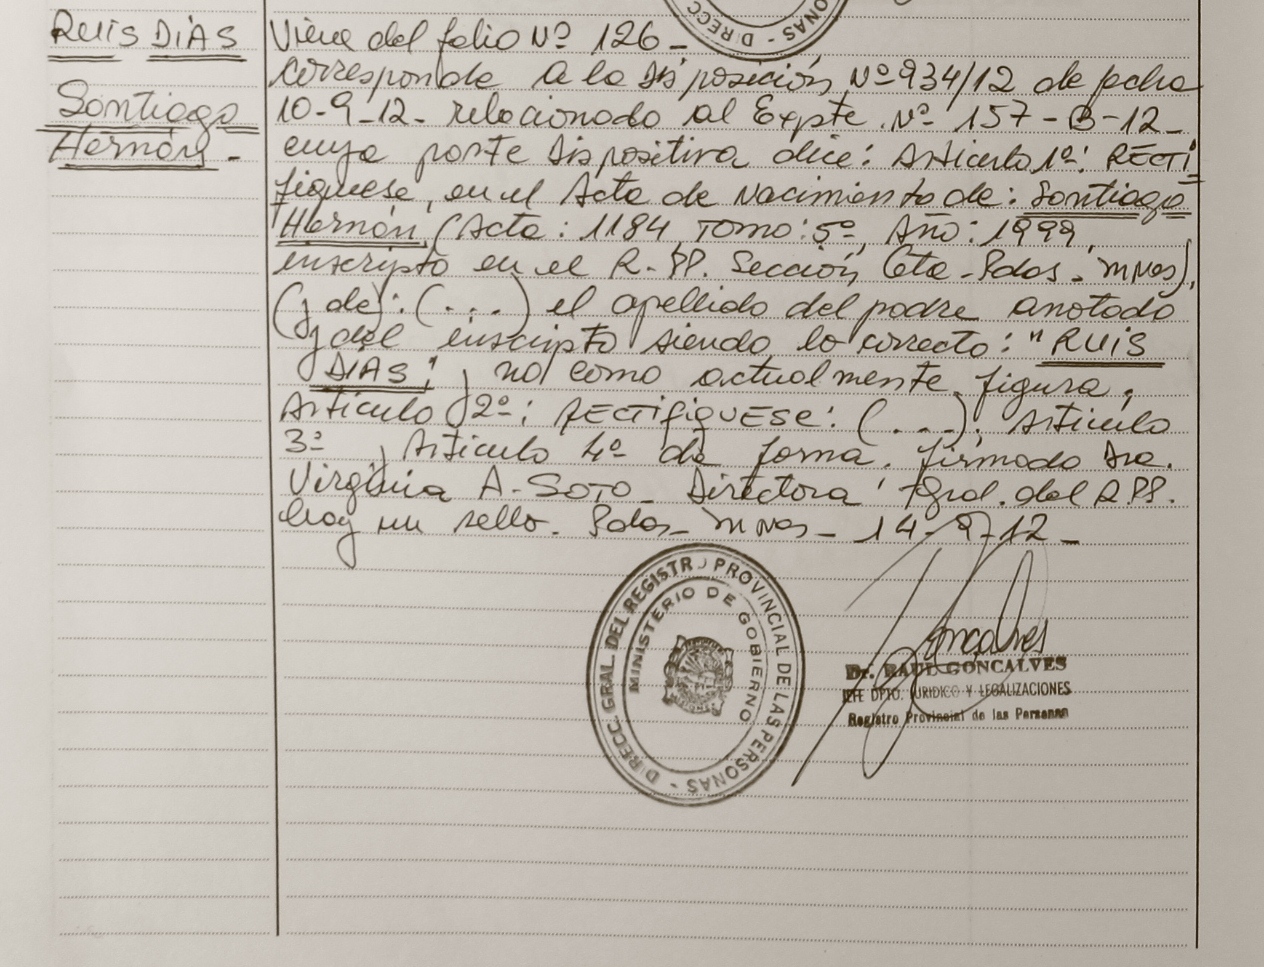 NAS - DIRECC
RUIS DIAS
Santiago
Hernán -
Viene del folio Nº 126 -
Corresponde a la Disposición Nº 934/12 de fecha
10-9-12- relacionado al Expte. Nº 157-B-12-
cuya parte Dispositiva dice: Artículo 1º: RECTI
fiquese, en el Acta de Nacimiento de: Santiago
Hernán, (Acta: 1184, Tomo: 5º, Año: 1999,
inscripto en el R.PP. Sección Cta - Pdas. mnes),
(y de): (...) el apellido del padre anotado
y del inscripto siendo lo correcto: "RUIS
DIAS", y no como actualmente figura.
Artículo 2º: RECTIFIQUESE: (...); Artículo
3º y Artículo 4º de forma. Firmado Dra.
Virginia A. SOTO - Directora Gral. del R.PP.
hay un sello. Pdas - mnes - 14-9-12 -
DIRECC. GRAL. DEL REGISTRO PROVINCIAL DE LAS PERSONAS -
MINISTERIO DE GOBIERNO
Goncalves
Dr. RAUL GONCALVES
JEFE DPTO. JURIDICO Y LEGALIZACIONES
Registro Provincial de las Personas